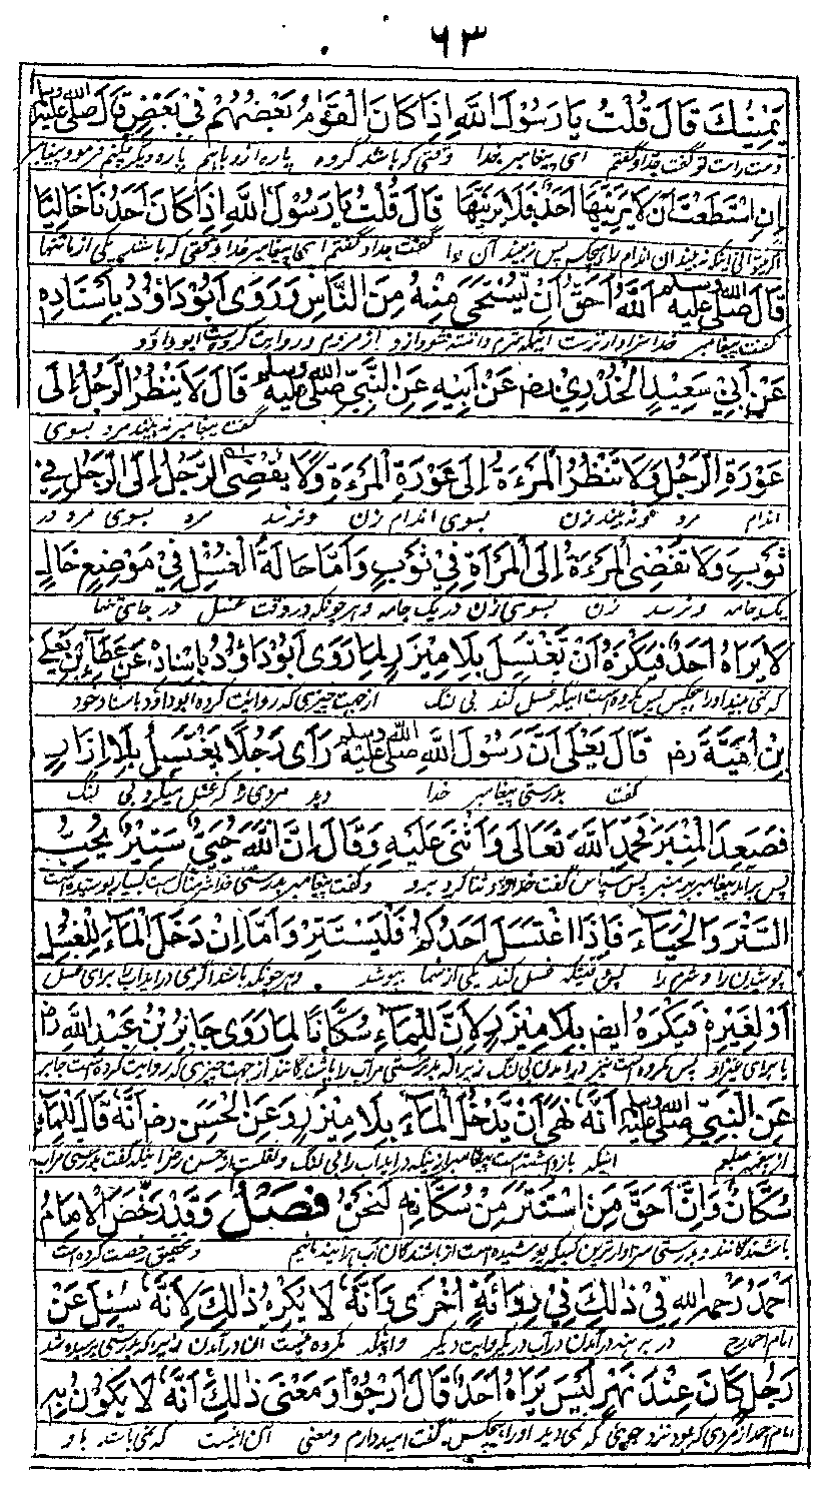 ٦٣
يَمِيْنُكَ قَالَ قُلْتُ يَا رَسُوْلَ اللّٰهِ اِذَا كَانَ الْقَوْمُ بَعْضُهُمْ فِيْ بَعْضٍ قَالَ صلى الله عليه وسلم
دست راست تو گفت جد او گفتم ای پیغامبر خدا وقتی که باشد گروه پاره از و باهم پاره دیگر
اِنِ اسْتَطَعْتَ اَنْ لَا يَرَيَنَّهَا اَحَدٌ فَلَا يَرَيَنَّهَا قَالَ قُلْتُ يَا رَسُوْلَ اللّٰهِ اِذَا كَانَ اَحَدُنَا خَالِيًا
گفت جد او گفتم ای پیغامبر خدا وقتی که باشد یکی از ما تنها
قَالَ صلى الله عليه وسلم اَللّٰهُ اَحَقُّ اَنْ يُّسْتَحْيَ مِنْهُ مِنَ النَّاسِ وَرَوَى اَبُوْ دَاوُدَ بِاِسْنَادِهِ
گفت پیغامبر خدا سزاوارترست اینکه شرم داشته شود ازو از مردم و روایت کرده است ابوداؤد
عَنْ اَبِيْ سَعِيْدِ الْخُدْرِيِّ رض عَنْ اَبِيْهِ عَنِ النَّبِيِّ صلى الله عليه وسلم قَالَ لَا يَنْظُرُ الرَّجُلُ اِلَى
گفت پیغامبر نه بیند مرد بسوی
عَوْرَةِ الرَّجُلِ وَلَا تَنْظُرُ الْمَرْءَةُ اِلَى عَوْرَةِ الْمَرْءَةِ وَلَا يُفْضِى الرَّجُلُ اِلَى الرَّجُلِ فِيْ
اندام مرد و نه بیند زن بسوی اندام زن و نرسد مرد بسوی مرد در
ثَوْبٍ وَلَا تُفْضِى الْمَرْءَةُ اِلَى الْمَرْاَةِ فِيْ ثَوْبٍ وَاَمَّا حَالَةُ الْغُسْلِ فِيْ مَوْضِعٍ خَالٍ
یک جامه و نرسد زن بسوی زن در یک جامه و هرچونکه در وقت غسل در جای تنها
لَا يَرَاهُ اَحَدٌ فَيَكْرَهُ اَنْ يَّغْتَسِلَ بِلَا مِيْزَرٍ لِمَا رَوَى اَبُوْ دَاوُدَ بِاِسْنَادِهِ عَنْ عَطَاءِ بْنِ يَعْلَى
که نمی بیند او را هیچکس پس مکروه است اینکه غسل کند بی لنگ از جهت چیزی که روایت کرده ابوداؤد باسناد خود
بْنِ اُمَيَّةَ رض قَالَ يَعْلَى اَنَّ رَسُوْلَ اللّٰهِ صلى الله عليه وسلم رَاَى رَجُلًا يَغْتَسِلُ بِلَا اِزَارٍ
گفت بدرستی پیغامبر خدا دید مردی را که غسل میکرد بی لنگ
فَصَعِدَ الْمِنْبَرَ فَحَمِدَ اللّٰهَ تَعَالَى وَاَثْنَى عَلَيْهِ وَقَالَ اِنَّ اللّٰهَ حَيِيٌّ سَتِيْرٌ يُحِبُّ
پس برآمد پیغامبر بر منبر پس سپاس گفت خدا را و ثنا کرد برو و گفت پیغامبر بدرستی خدا
السَّتْرَ وَالْحَيَاءَ فَاِذَا اغْتَسَلَ اَحَدُكُمْ فَلْيَسْتَتِرْ وَاَمَّا اِنْ دَخَلَ الْمَاءَ لِلْغُسْلِ
پوشیدن را و شرم را پس وقتیکه غسل کند یکی از شما بپوشد و هرچونکه باشد اگر می درآید آب را برای غسل
اَوْ لِغَيْرِهِ فَيَكْرَهُ ايض بِلَا مِيْزَرٍ لِاَنَّ لِلْمَاءِ سُكَّانًا لِمَا رَوَى جَابِرُ بْنُ عَبْدِ اللّٰهِ رض
یا برای غیر او پس مکروه است نیز درآمدن بی لنگ زیرا که بدرستی مر آب را باشندگانند از جهت چیزی که روایت کرده است جابر
عَنِ النَّبِيِّ صلى الله عليه وسلم اَنَّهُ نَهَى اَنْ يُّدْخَلَ الْمَاءُ بِلَا مِيْزَرٍ وَعَنِ الْحَسَنِ رض اَنَّهُ قَالَ لِلْمَاءِ
اینکه باز داشته است پیغامبر از اینکه درآید آب را بی لنگ
سُكَّانٌ وَاِنَّ اَحَقَّ مَنِ اسْتَتَرَ مِنْ سُكَّانِهِ لَنَحْنُ فَصْلٌ وَقَدْ رَخَّصَ الْاِمَامُ
باشندگانند و بدرستی سزاوارترین کسیکه پوشیده است از باشندگان آب هر آئینه مائیم و تحقیق رخصت کرده است
اَحْمَدُ رَحِمَهُ اللّٰهُ فِيْ ذٰلِكَ فِيْ رِوَايَةٍ اُخْرَى وَاَنَّهُ لَا يَكْرَهُ ذٰلِكَ لِاَنَّهُ سُئِلَ عَنْ
امام احمد رح در برهنه درآمدن در آب در یک روایت دیگر و اینکه مکروه نیست این درآمدن زیرا که بدرستی پرسیده شد
رَجُلٍ كَانَ عِنْدَ نَهْرٍ لَيْسَ يَرَاهُ اَحَدٌ قَالَ اَرْجُوْ وَمَعْنَى ذٰلِكَ اَنَّهُ لَا يَكُوْنُ بِهِ
امام احمد از مردی که بود نزد جوئی که نمی دید او را هیچکس گفت امید دارم و معنی این اینست که نمی باشد باو